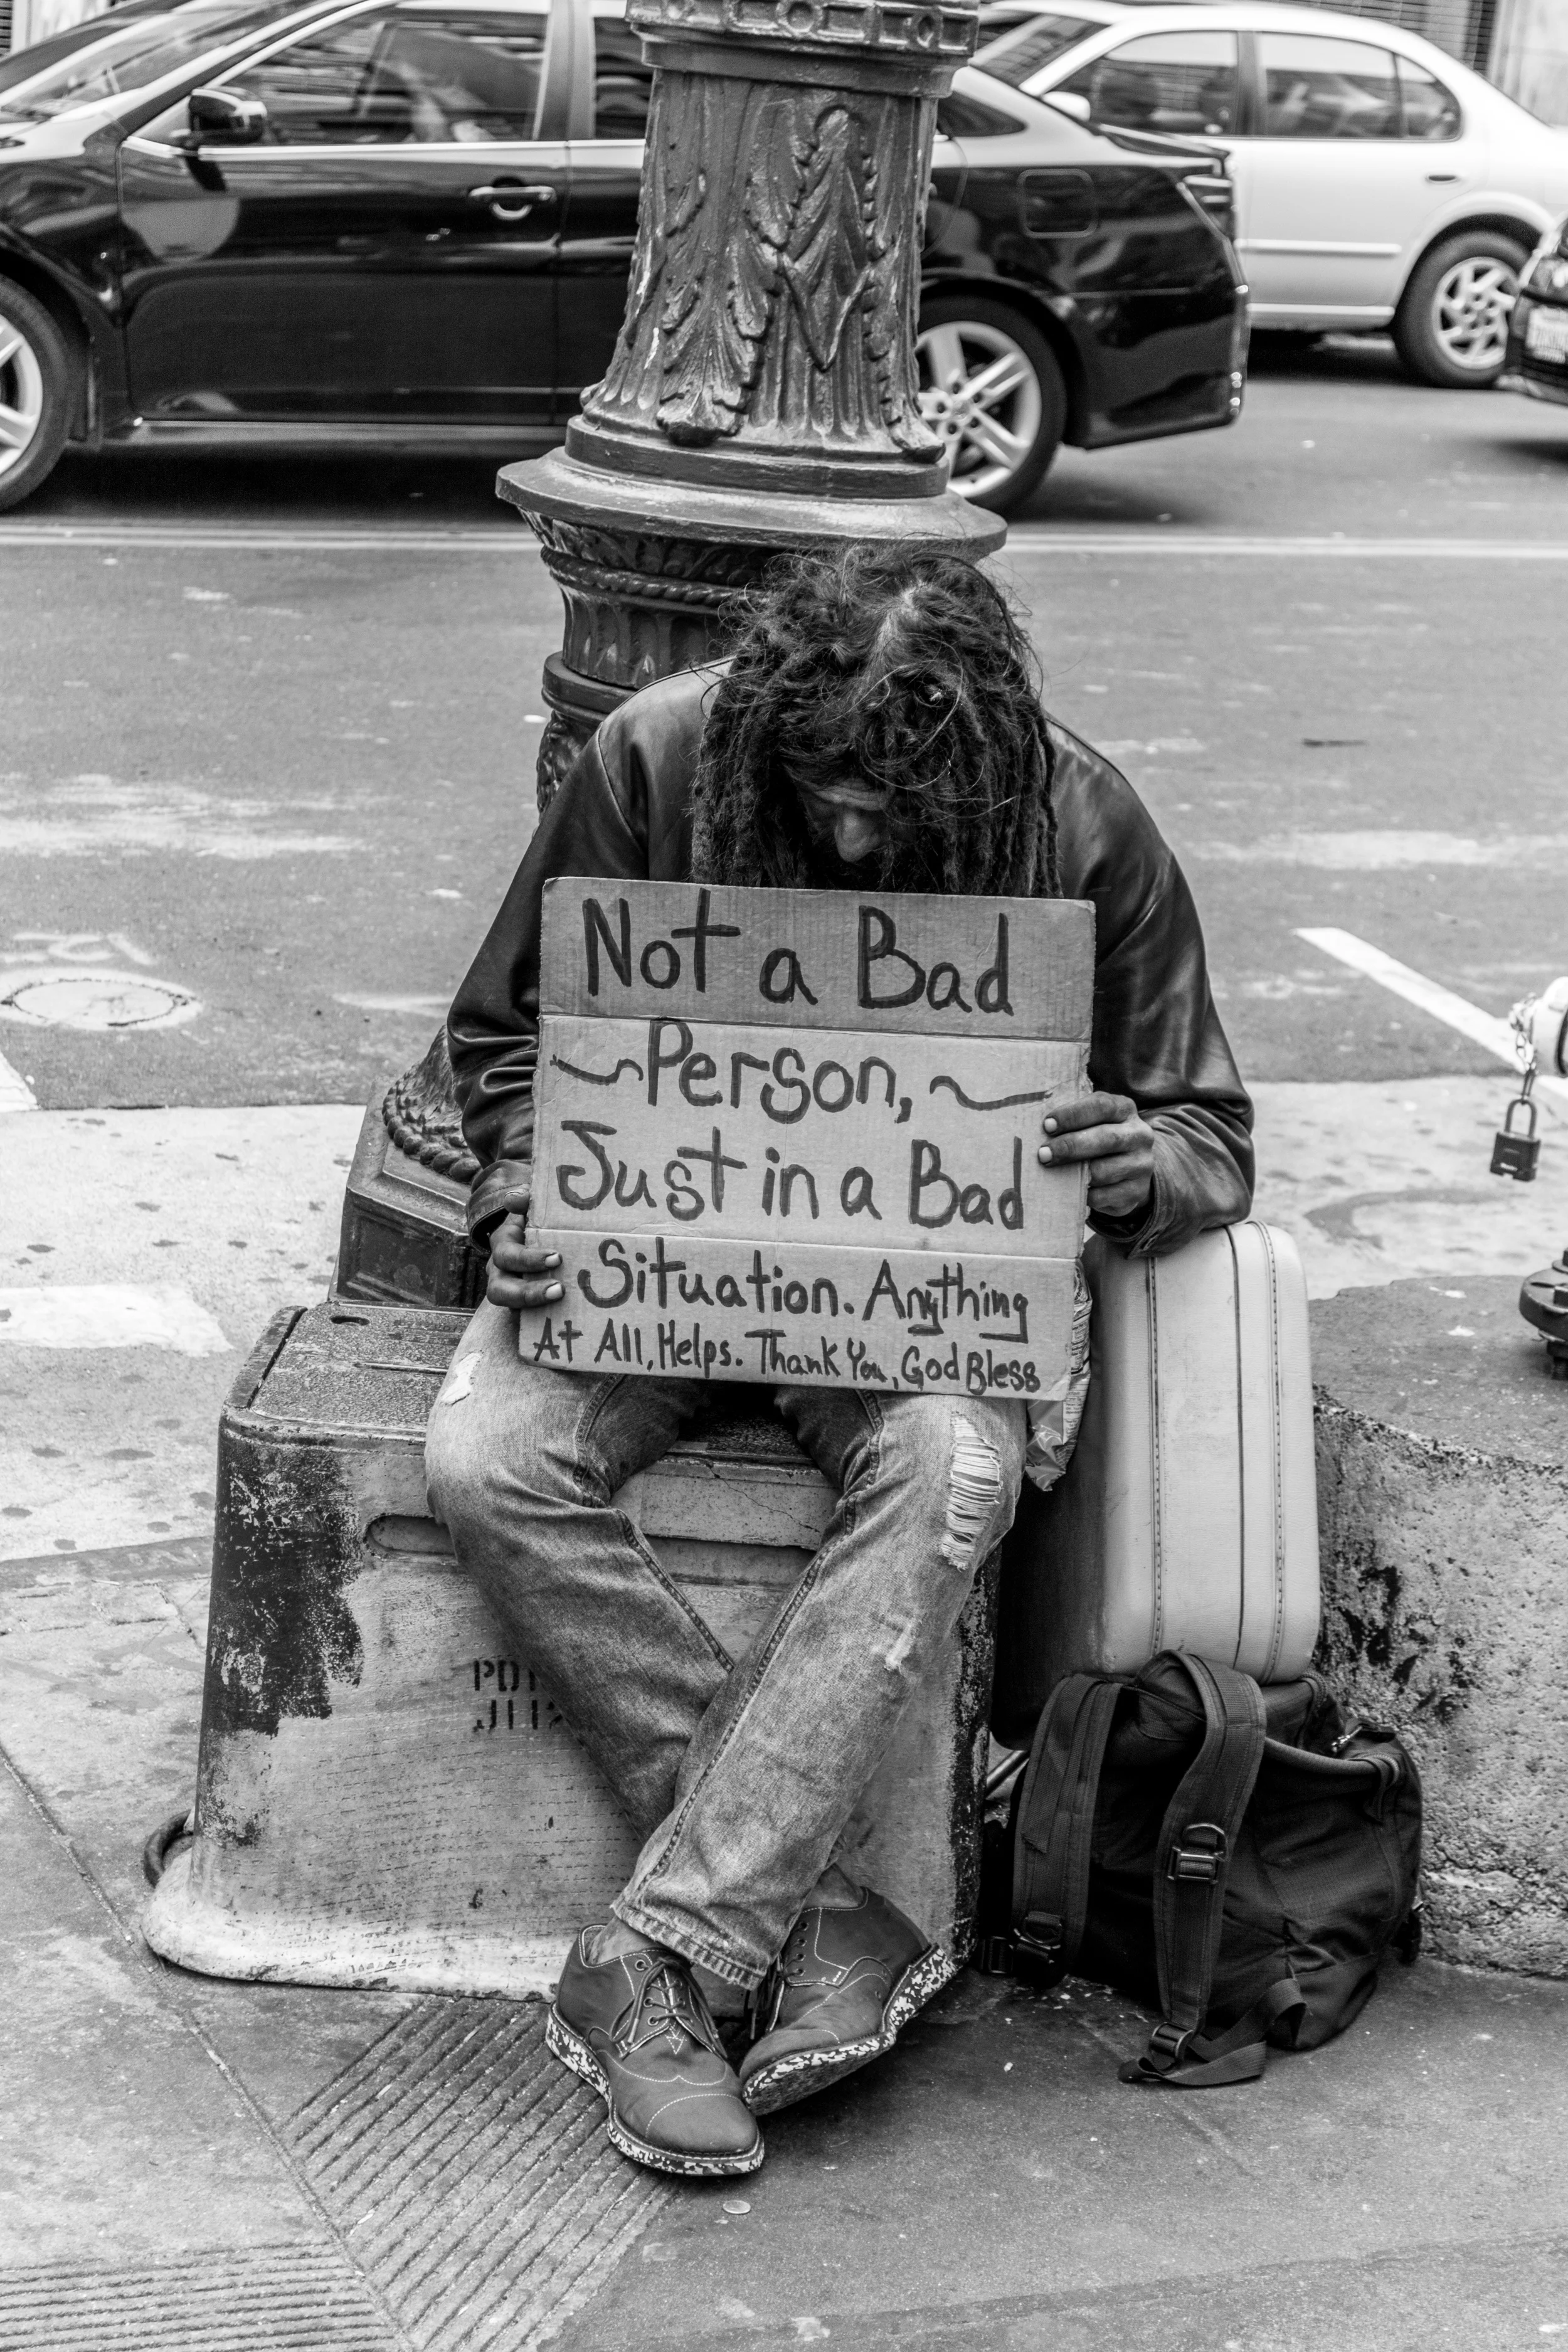 Not a Bad
Person,
Just in a Bad
Situation. Anything
At All, Helps. Thank You, God Bless